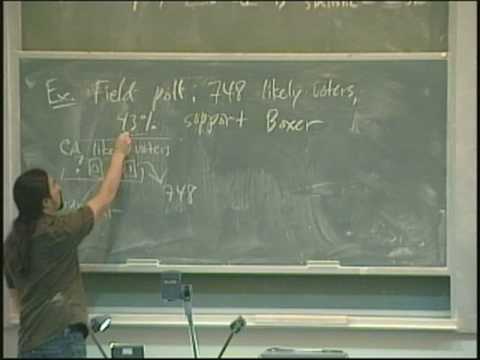 is statistic
Ex. Field poll: 748 likely voters,
43% support Boxer
CA likely voters
? 0 1
748